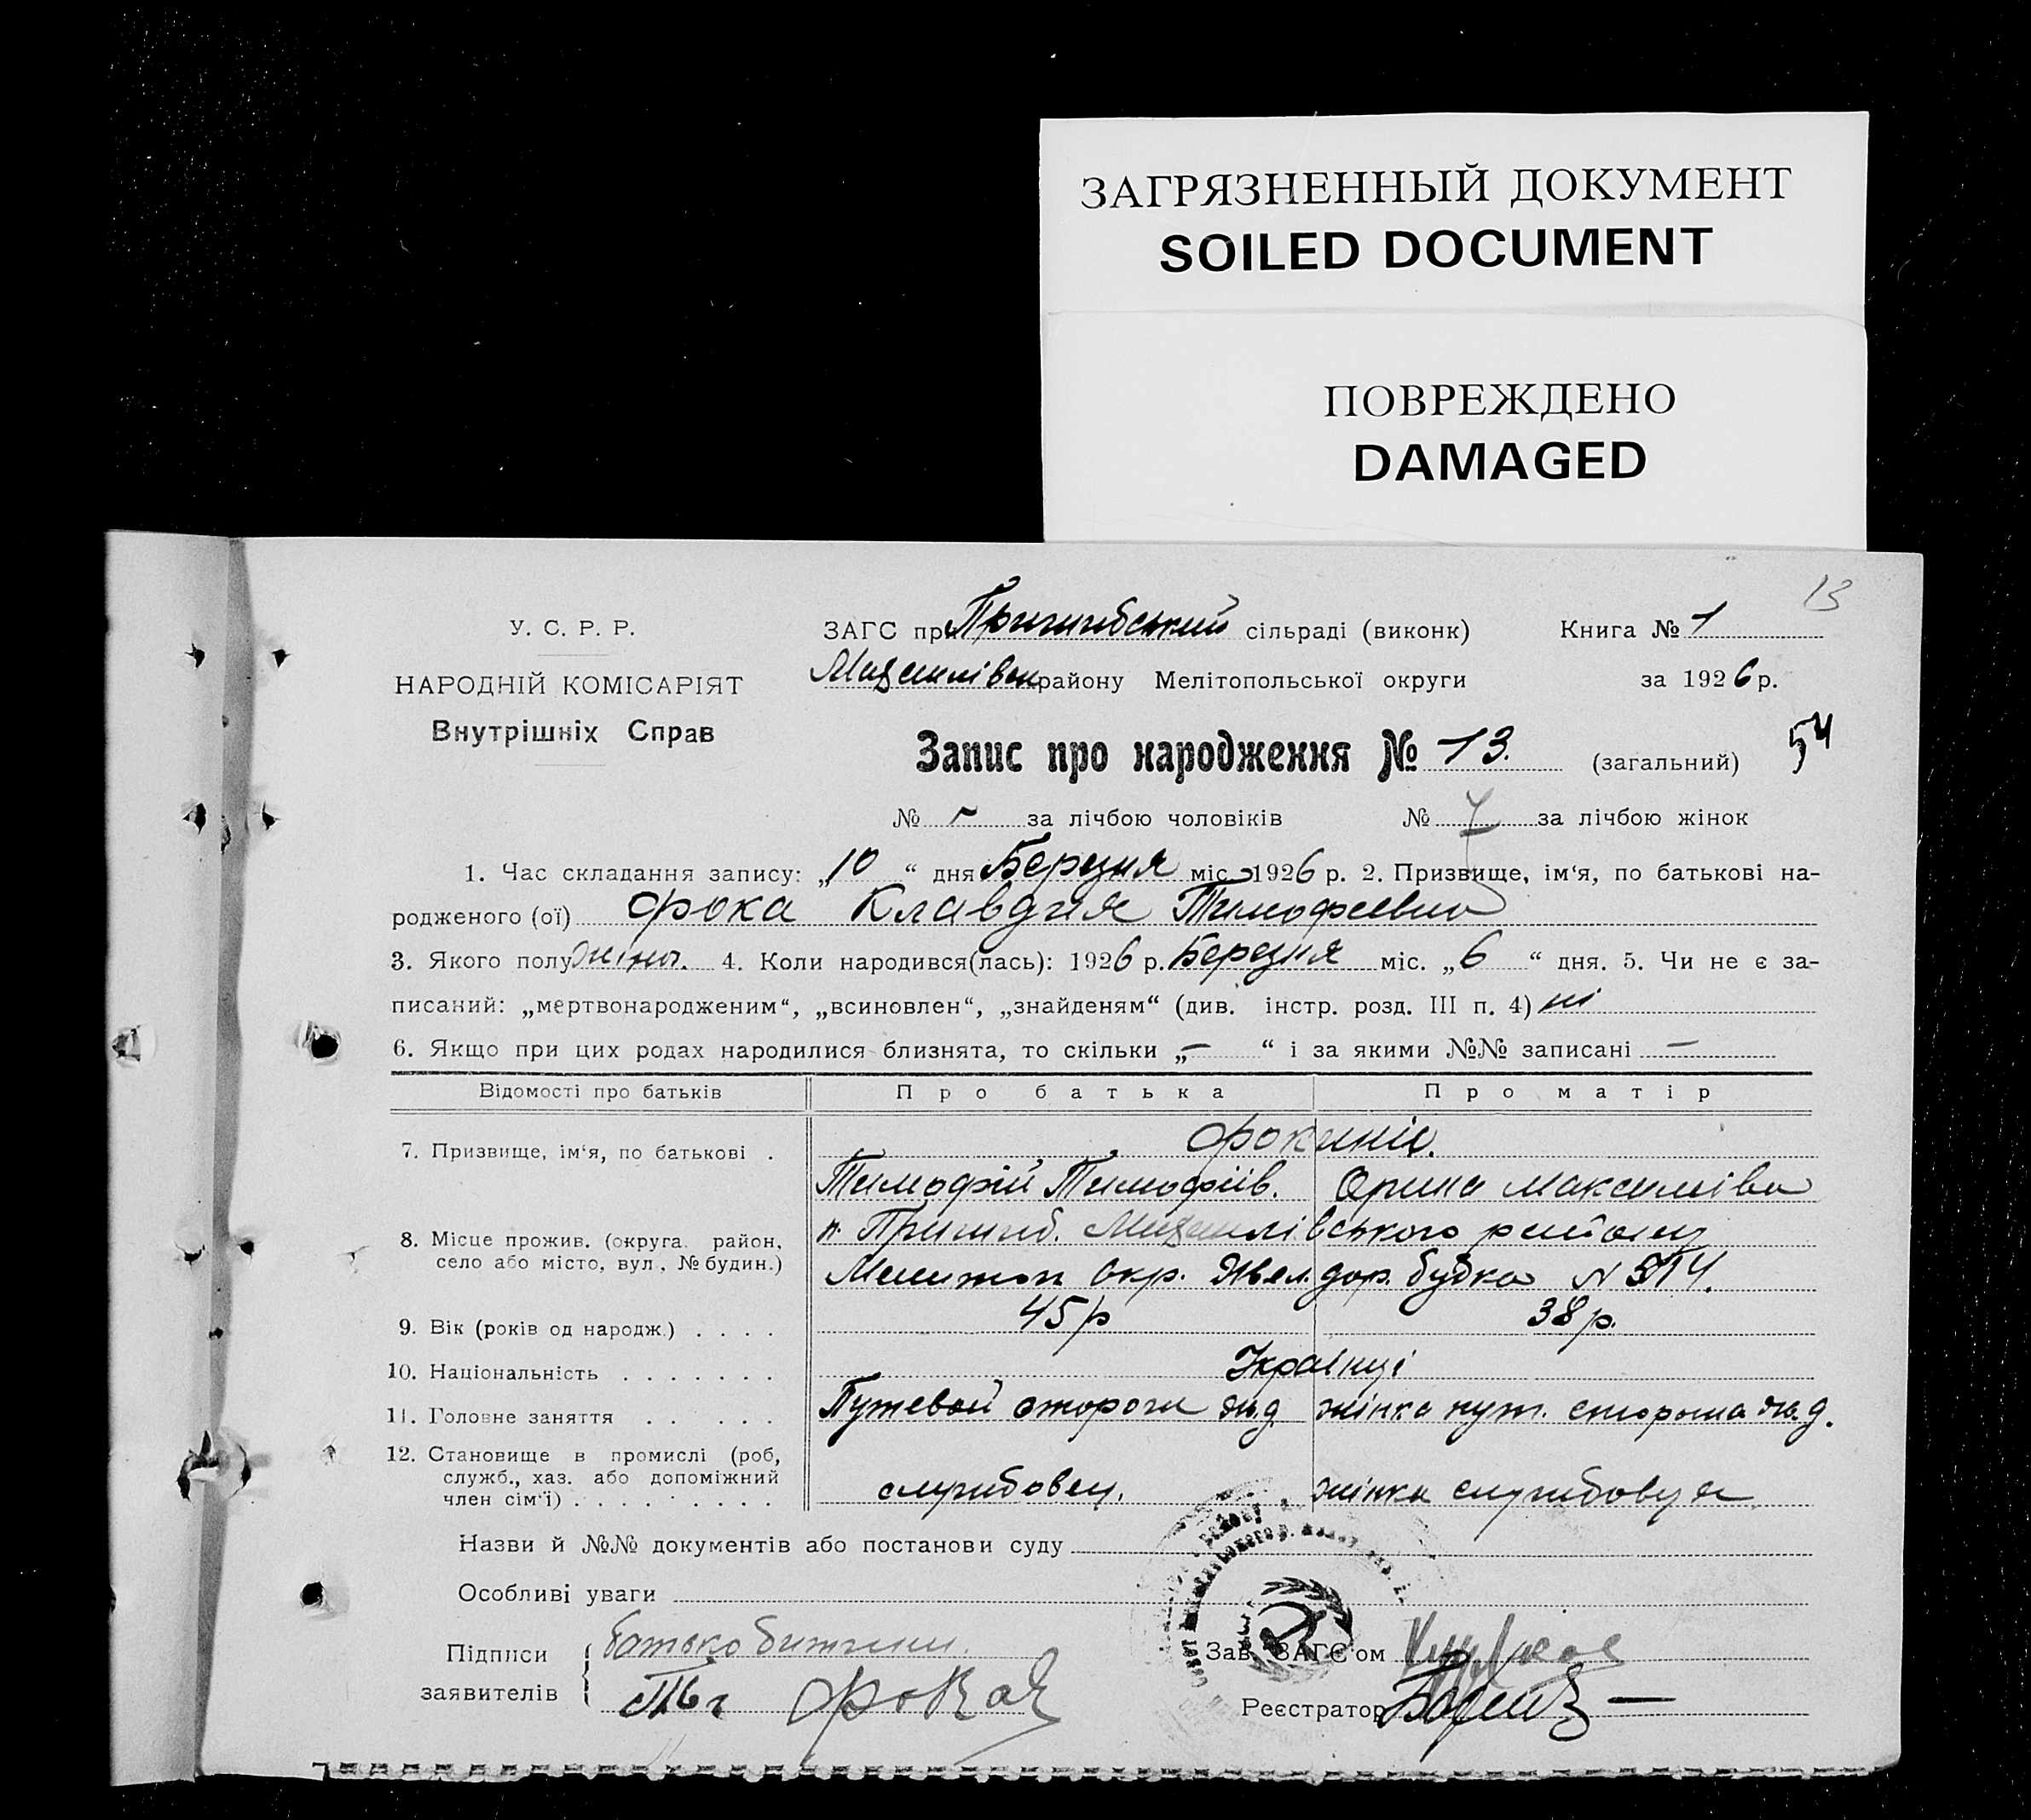 ЗАГРЯЗНЕННЫЙ ДОКУМЕНТ
SOILED DOCUMENT
ПОВРЕЖДЕНО
DAMAGED
13
У. С. Р. Р.
ЗАГС при Пришибський сільраді (виконк) Книга № 1
НАРОДНІЙ КОМІСАРІЯТ
Михайлівськ району Мелітопольської округи за 1926 р.
Внутрішніх Справ
Запис про народження № 13. (загальний) 54
№ - за лічбою чоловіків № 7 за лічбою жінок
1. Час складання запису: „10“ дня Березня міс. 1926 р. 2. Призвище, ім‘я, по батькові на-
родженого (ої) Фока Клавдия Тимофеевна
3. Якого полу жіноч. 4. Коли народився(лась): 1926 р. Березня міс. „6“ дня. 5. Чи не є за-
писаний: „мертвонародженим“, „всиновлен“, „знайденям“ (див. інстр. розд. III п. 4) ні
6. Якщо при цих родах народилися близнята, то скільки „-“ і за якими №№ записані -
Відомості про батьків Про батька Про матір
7. Призвище, ім‘я, по батькові .
Тимофій Тимофіїв. Орина Максимівна
8. Місце прожив. (округа, район, село або місто, вул., № будин.)
п. Пришиб. Михайлівського району
Мелитоп окр. Жел. дор. будка N 514.
9. Вік (років од народж.) . . . . 45 р 38 р.
10. Національність . . . . . . . Українці
11. Головне заняття . . . . . Путевой сторож ж.д. жінка пут. сторожа ж.д.
12. Становище в промислі (роб, служб., хаз. або допоміжний член сім‘ї) . . . . . . . . . .
службовец. жінка службовця
Назви й №№ документів або постанови суду
Особливі уваги
Підписи заявителів
батько дитини.
Фока
Зав. ЗАГС‘ом
Реєстратор